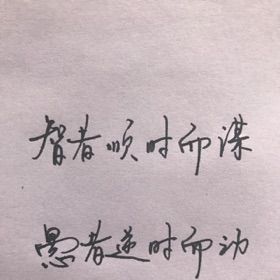 智者顺时而谋
愚者逆时而动